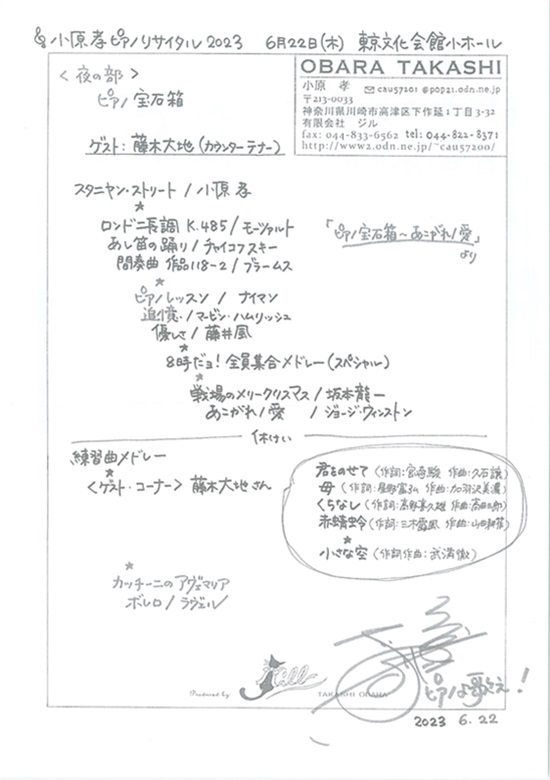 小原孝ピアノリサイタル 2023 6月22日(木) 東京文化会館小ホール
OBARA TAKASHI
小原 孝 cau57201@pop21.odn.ne.jp
〒213-0033
神奈川県川崎市高津区下作延1丁目3-32
有限会社 ジル
fax: 044-833-6562 tel: 044-822-8371
http://www2.odn.ne.jp/~cau57200/
<夜の部>
ピアノ宝石箱
ゲスト: 藤木大地(カウンターテナー)
スタニヤン・ストリート / 小原孝
★
ロンドニ長調 K.485 / モーツァルト
あし笛の踊り / チャイコフスキー
間奏曲 作品118-2 / ブラームス
「ピアノ宝石箱〜あこがれ/愛」
より
★
ピアノレッスン / ナイマン
追憶 / マービン・ハムリッシュ
優しさ / 藤井風
★
8時だョ!全員集合メドレー(スペシャル)
★
戦場のメリークリスマス / 坂本龍一
あこがれ/愛 / ジョージ・ウィンストン
休けい
練習曲メドレー
<ゲスト・コーナー> 藤木大地さん
君をのせて (作詞:宮崎駿 作曲:久石譲)
母 (作詞:星野富弘 作曲:加羽沢美濃)
くちなし (作詞:高野喜久雄 作曲:高田三郎)
赤蜻蛉 (作詞:三木露風 作曲:山田耕筰)
★
小さな空 (作詞作曲:武満徹)
カッチーニのアヴェマリア
ボレロ / ラヴェル
ピアノよ歌え!
Produced by Jill
TAKASHI OBARA
2023 6.22